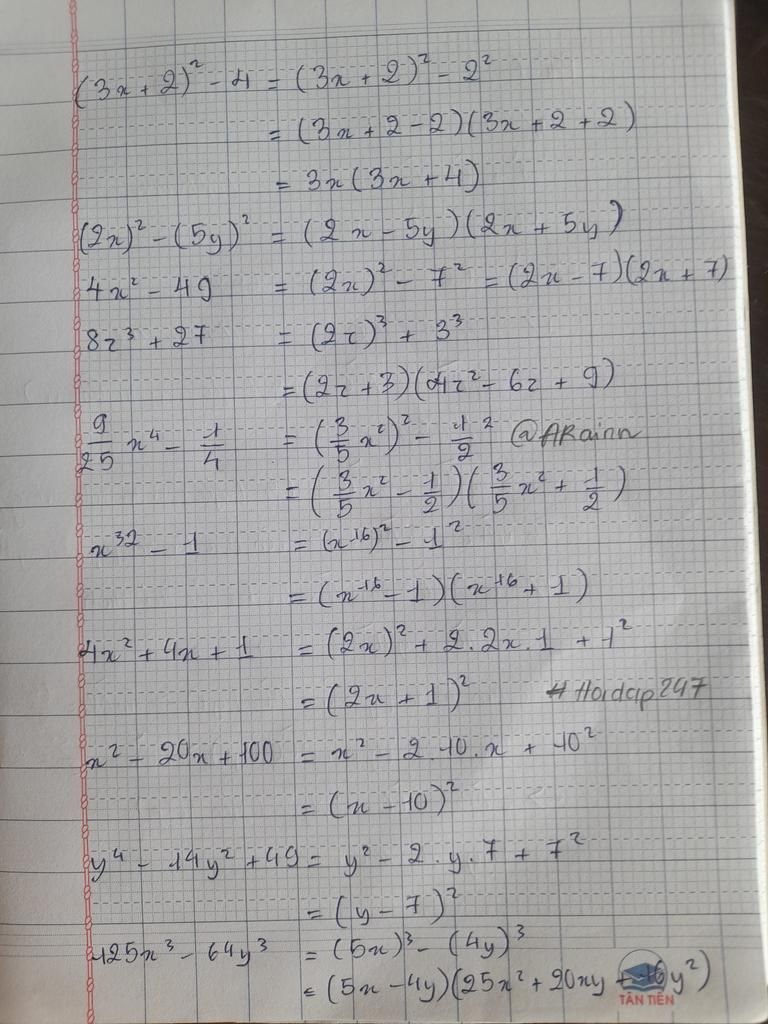 (3x + 2)² - 4 = (3x + 2)² - 2²
= (3x + 2 - 2)(3x + 2 + 2)
= 3x(3x + 4)
(2x)² - (5y)² = (2x - 5y)(2x + 5y)
4x² - 49 = (2x)² - 7² = (2x - 7)(2x + 7)
8z³ + 27 = (2z)³ + 3³
= (2z + 3)(4z² - 6z + 9)
9/25 x⁴ - 1/4 = (3/5 x²)² - 1/2² @ARainn
= (3/5 x² - 1/2)(3/5 x² + 1/2)
x³² - 1 = (x¹⁶)² - 1²
= (x¹⁶ - 1)(x¹⁶ + 1)
4x² + 4x + 1 = (2x)² + 2.2x.1 + 1²
= (2x + 1)² #Hoidap247
x² - 20x + 100 = x² - 2.10.x + 10²
= (x - 10)²
y⁴ - 14y² + 49 = y² - 2.y.7 + 7²
= (y - 7)²
125x³ - 64y³ = (5x)³ - (4y)³
= (5x - 4y)(25x² + 20xy + 16y²)
TÂN TIẾN